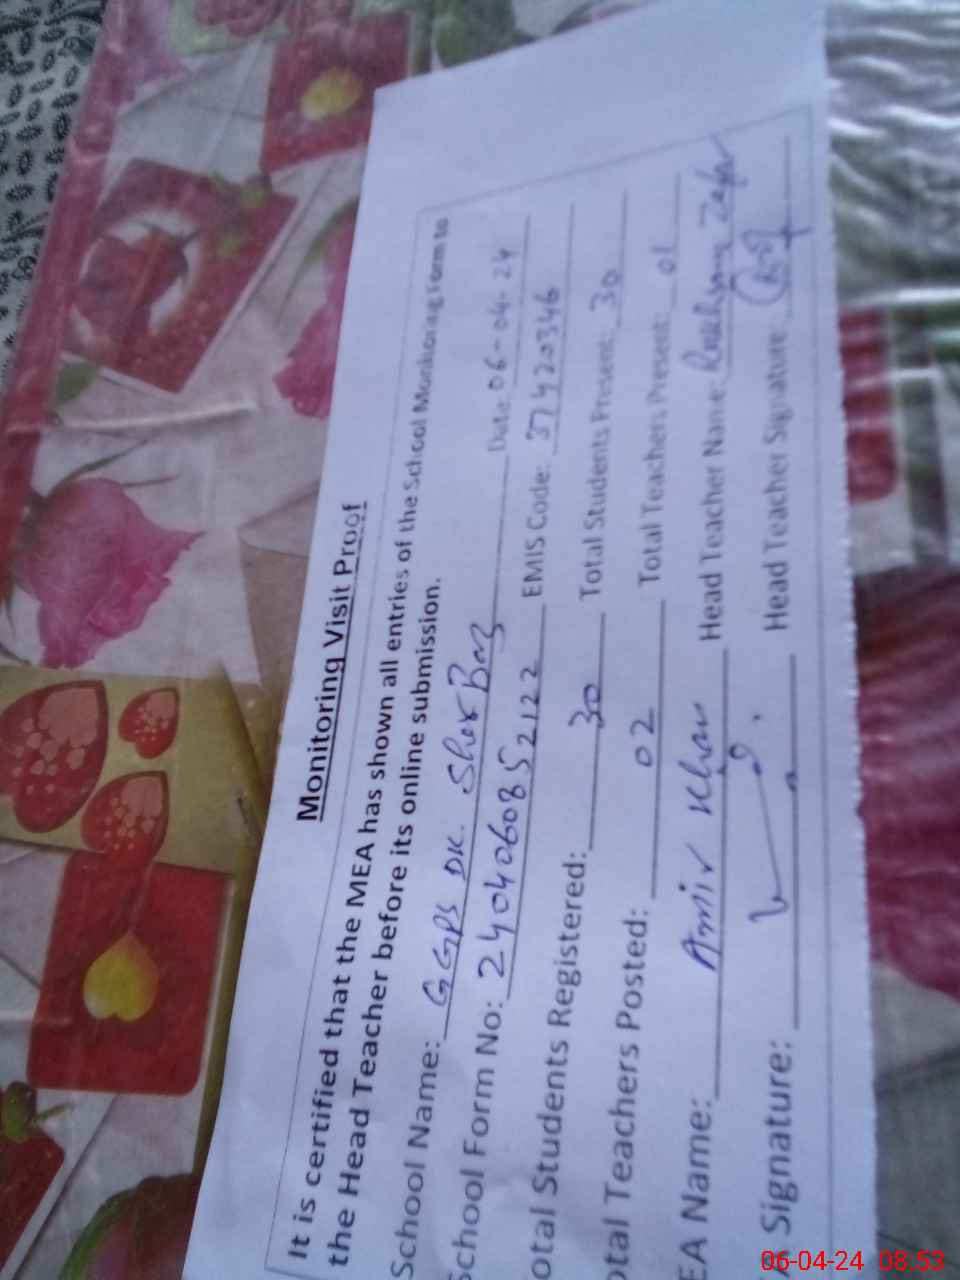 Monitoring Visit Proof
It is certified that the MEA has shown all entries of the School Monitoring Form to
the Head Teacher before its online submission.
School Name: GGPS DK. Sher Baz Date: 06-04-24
School Form No: 2404060852122 EMIS Code: 37420346
otal Students Registered: 30 Total Students Present: 30
otal Teachers Posted: 02 Total Teachers Present: 01
EA Name: Amir Khan Head Teacher Name:
Signature: Head Teacher Signature:
06-04-24 08:53